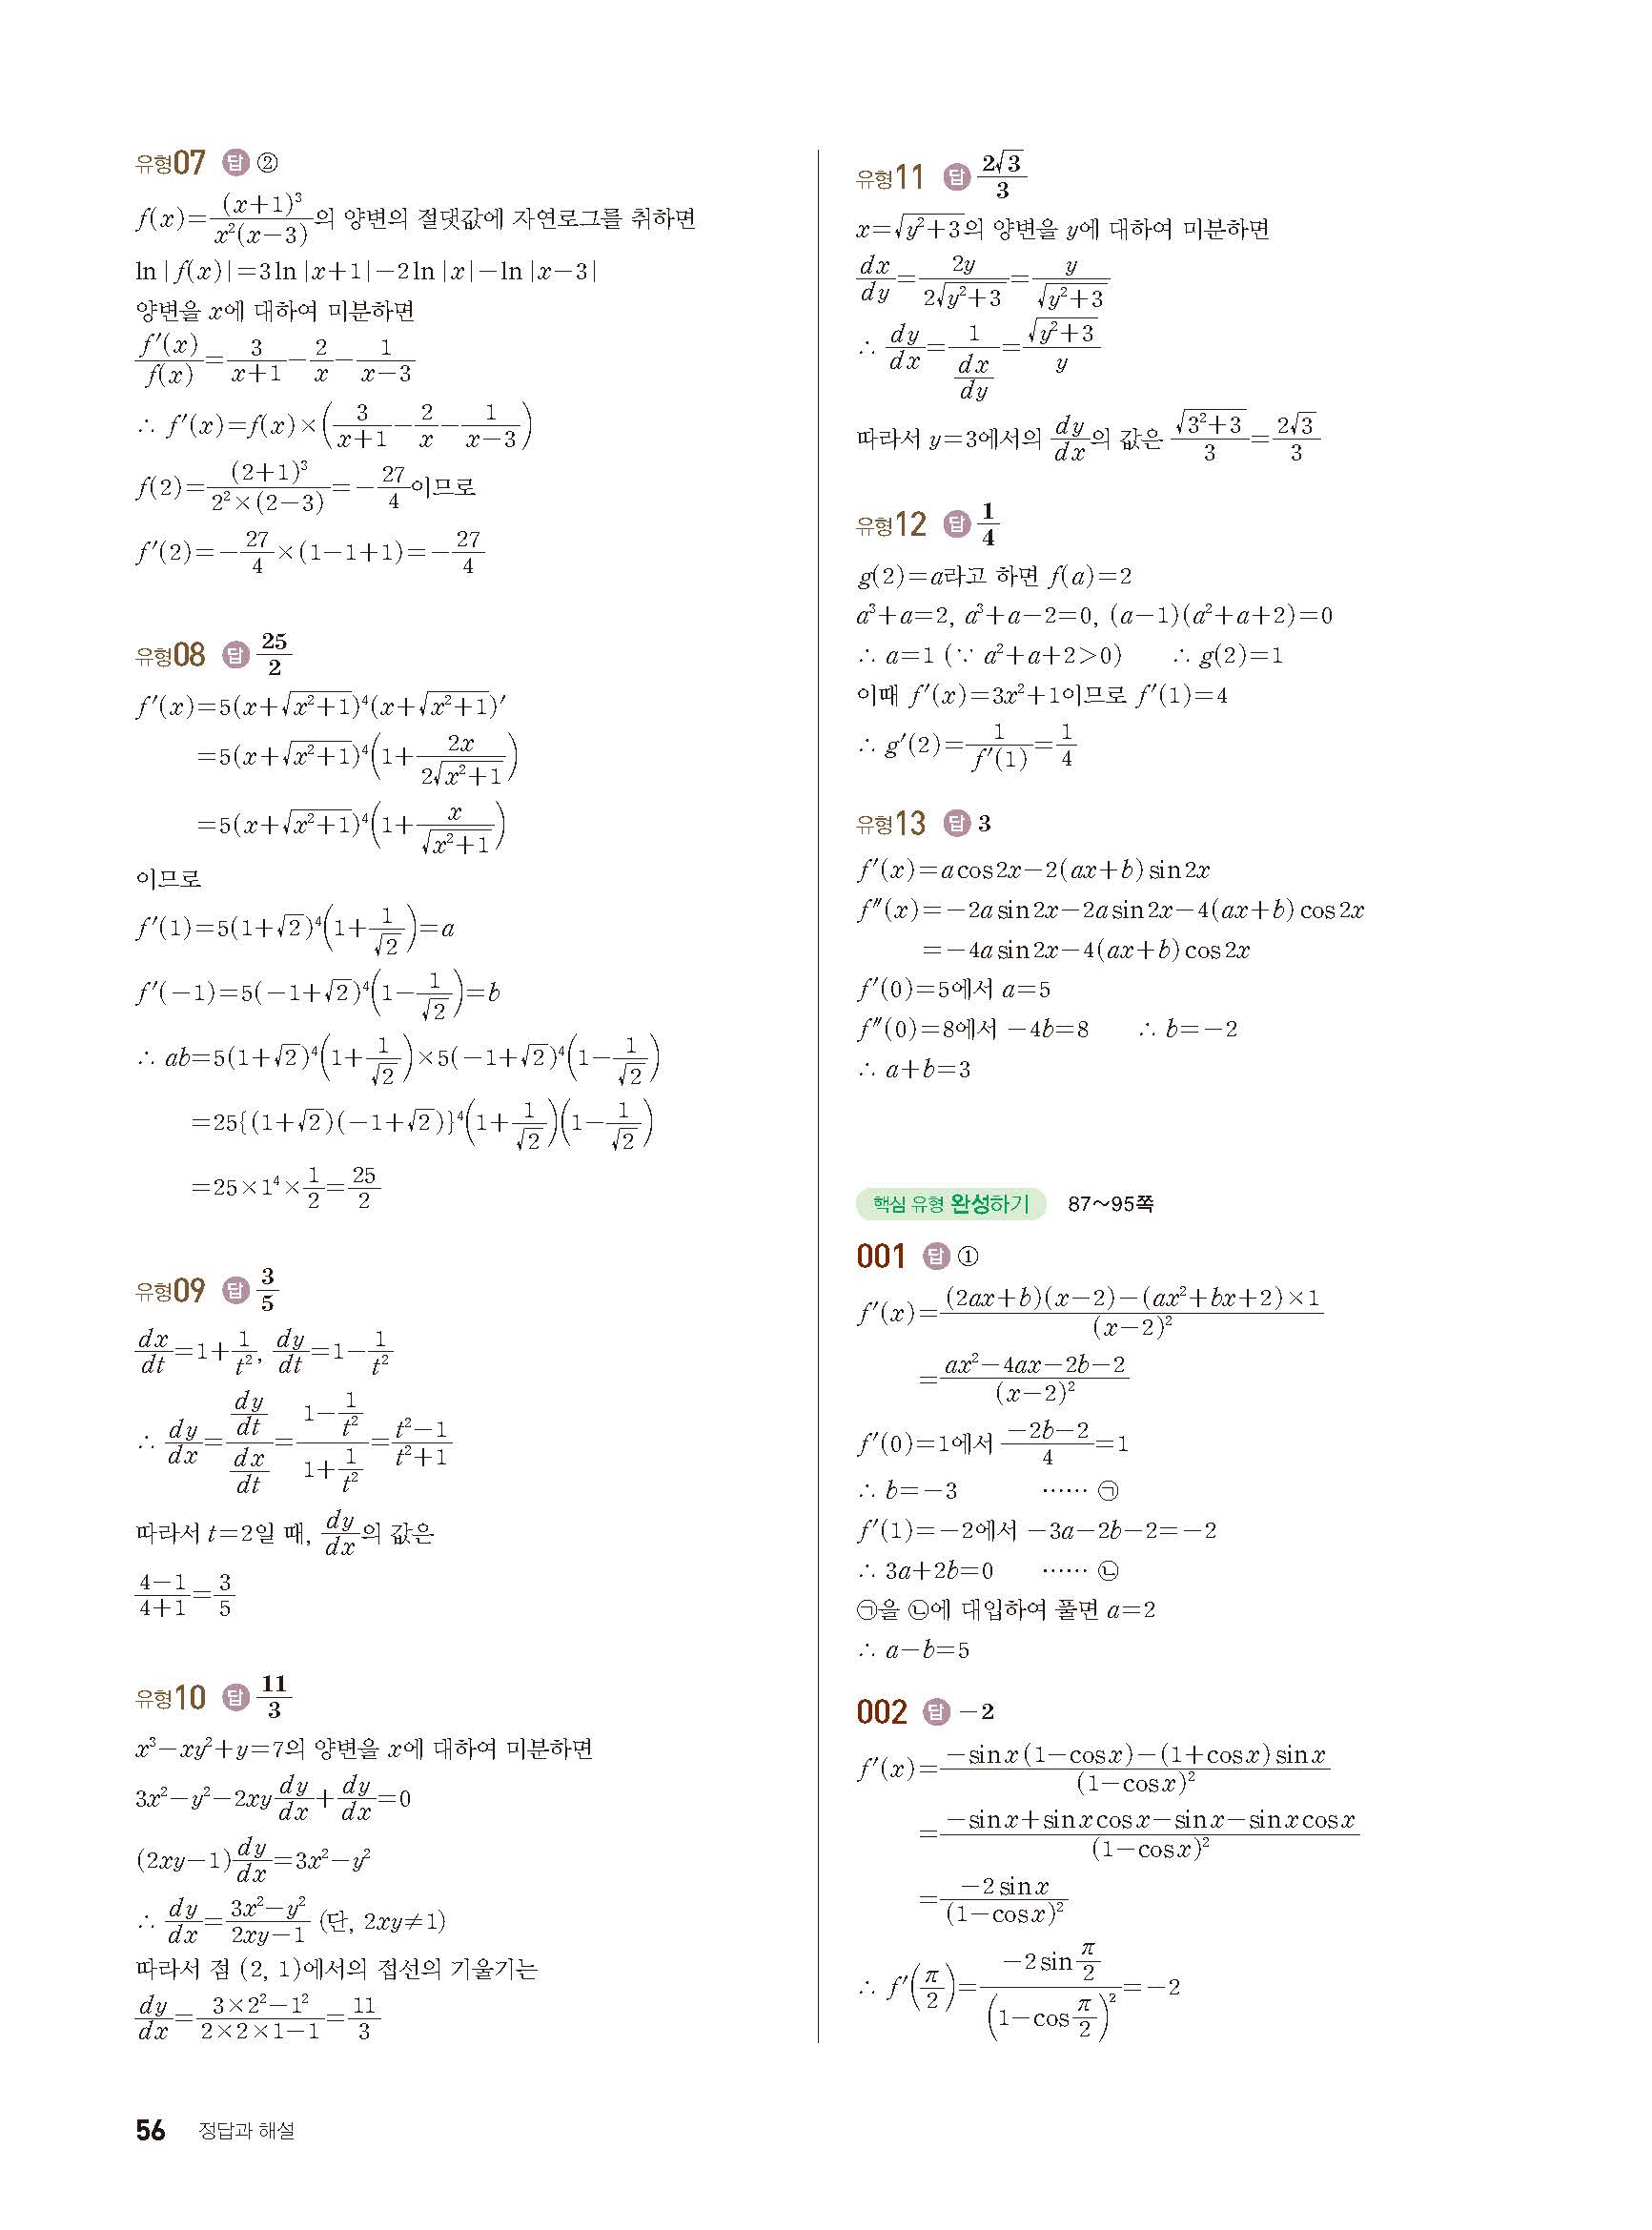 유형07 답 ②
f(x)=(x+1)³/x²(x-3)의 양변의 절댓값에 자연로그를 취하면
ln|f(x)|=3ln|x+1|-2ln|x|-ln|x-3|
양변을 x에 대하여 미분하면
f′(x)/f(x)=3/(x+1)-2/x-1/(x-3)
∴ f′(x)=f(x)×(3/(x+1)-2/x-1/(x-3))
f(2)=(2+1)³/(2²×(2-3))=-27/4이므로
f′(2)=-27/4×(1-1+1)=-27/4
유형08 답 25/2
f′(x)=5(x+√(x²+1))⁴(x+√(x²+1))′
=5(x+√(x²+1))⁴(1+2x/(2√(x²+1)))
=5(x+√(x²+1))⁴(1+x/√(x²+1))
이므로
f′(1)=5(1+√2)⁴(1+1/√2)=a
f′(-1)=5(-1+√2)⁴(1-1/√2)=b
∴ ab=5(1+√2)⁴(1+1/√2)×5(-1+√2)⁴(1-1/√2)
=25{(1+√2)(-1+√2)}⁴(1+1/√2)(1-1/√2)
=25×1⁴×1/2=25/2
유형09 답 3/5
dx/dt=1+1/t², dy/dt=1-1/t²
∴ dy/dx=(dy/dt)/(dx/dt)=(1-1/t²)/(1+1/t²)=(t²-1)/(t²+1)
따라서 t=2일 때, dy/dx의 값은
(4-1)/(4+1)=3/5
유형10 답 11/3
x³-xy²+y=7의 양변을 x에 대하여 미분하면
3x²-y²-2xy dy/dx+dy/dx=0
(2xy-1)dy/dx=3x²-y²
∴ dy/dx=(3x²-y²)/(2xy-1) (단, 2xy≠1)
따라서 점 (2, 1)에서의 접선의 기울기는
dy/dx=(3×2²-1²)/(2×2×1-1)=11/3
유형11 답 2√3/3
x=√(y²+3)의 양변을 y에 대하여 미분하면
dx/dy=2y/(2√(y²+3))=y/√(y²+3)
∴ dy/dx=1/(dx/dy)=√(y²+3)/y
따라서 y=3에서의 dy/dx의 값은 √(3²+3)/3=2√3/3
유형12 답 1/4
g(2)=a라고 하면 f(a)=2
a³+a=2, a³+a-2=0, (a-1)(a²+a+2)=0
∴ a=1 (∵ a²+a+2>0) ∴ g(2)=1
이때 f′(x)=3x²+1이므로 f′(1)=4
∴ g′(2)=1/f′(1)=1/4
유형13 답 3
f′(x)=a cos2x-2(ax+b) sin2x
f″(x)=-2a sin2x-2a sin2x-4(ax+b) cos2x
=-4a sin2x-4(ax+b) cos2x
f′(0)=5에서 a=5
f″(0)=8에서 -4b=8 ∴ b=-2
∴ a+b=3
핵심 유형 완성하기 87~95쪽
001 답 ①
f′(x)=((2ax+b)(x-2)-(ax²+bx+2)×1)/(x-2)²
=(ax²-4ax-2b-2)/(x-2)²
f′(0)=1에서 (-2b-2)/4=1
∴ b=-3 …… ㉠
f′(1)=-2에서 -3a-2b-2=-2
∴ 3a+2b=0 …… ㉡
㉠을 ㉡에 대입하여 풀면 a=2
∴ a-b=5
002 답 -2
f′(x)=(-sinx(1-cosx)-(1+cosx)sinx)/(1-cosx)²
=(-sinx+sinxcosx-sinx-sinxcosx)/(1-cosx)²
=-2sinx/(1-cosx)²
∴ f′(π/2)=(-2sin π/2)/(1-cos π/2)²=-2
56 정답과 해설